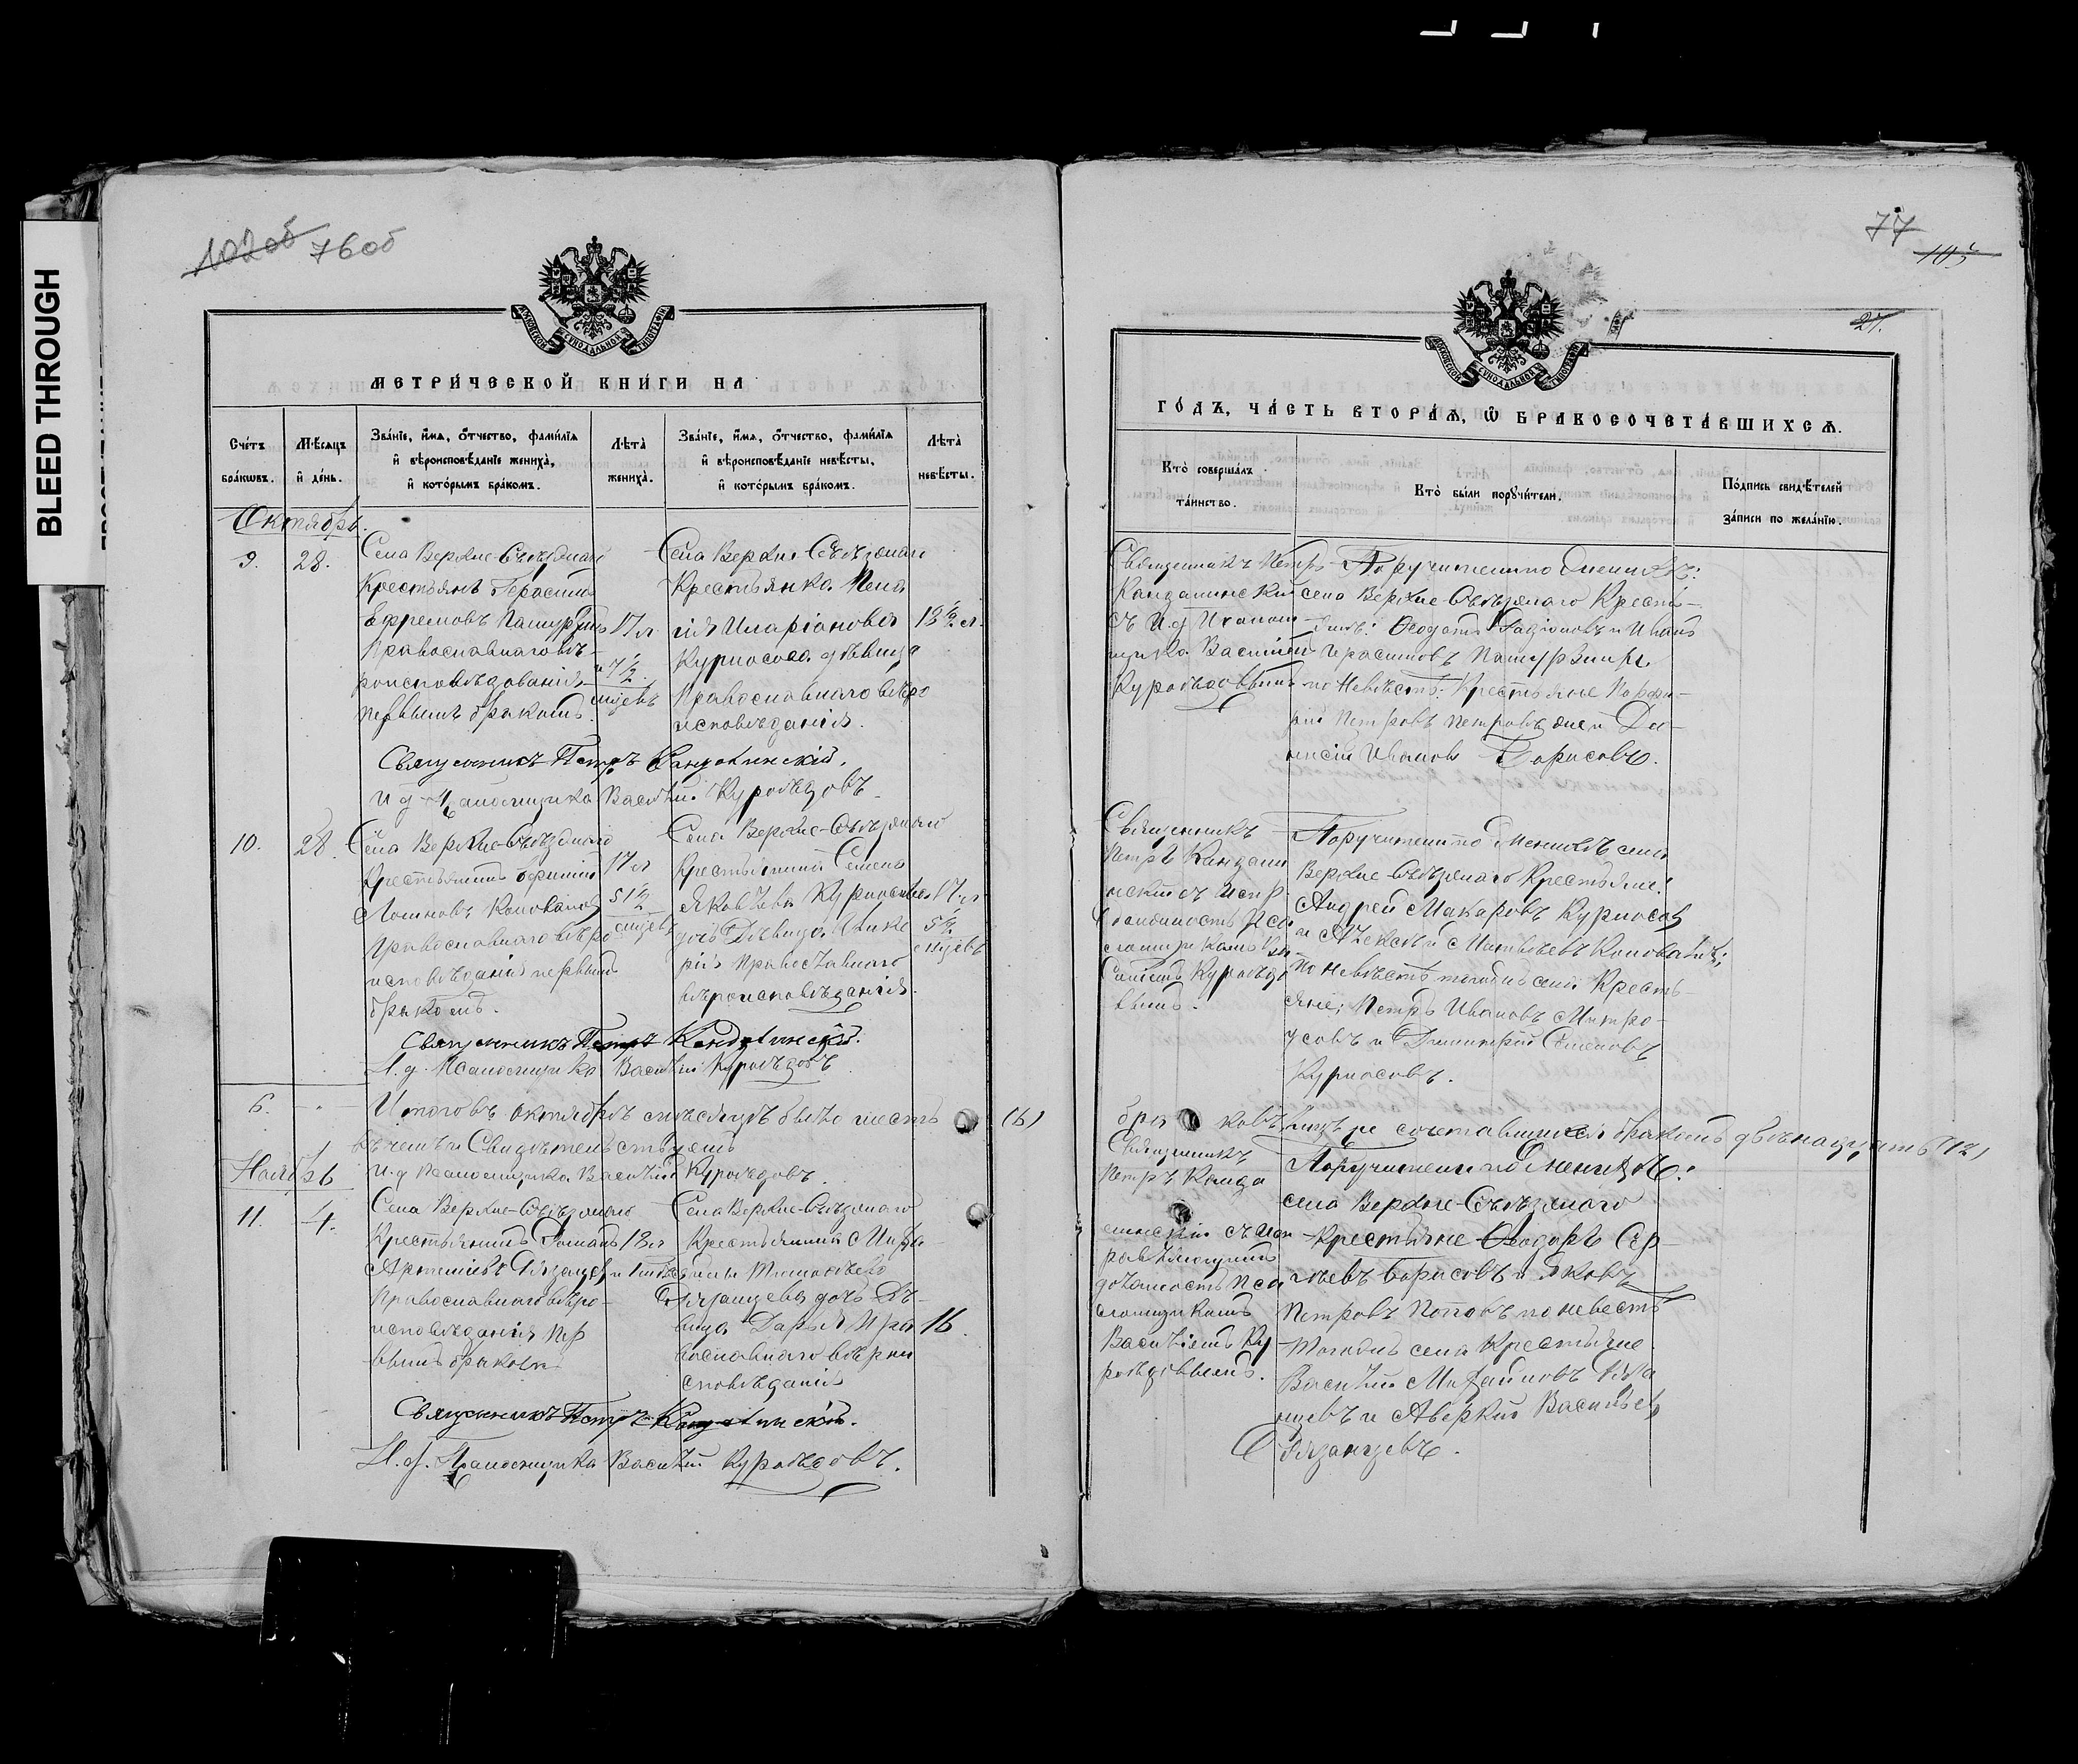 BLEED THROUGH
102об 76об
МОСКОВСКОЙ СѴНОДАЛЬНОЙ ТИПОГРАФІИ
МЕТРИ́ЧЕСКОЙ КНИ́ГИ НА
Сче́тъ бра́кѡвъ.
М҃сяцъ и҆ де́нь.
Зва́нїе, и҆́мѧ, ѻ҆́тчество, фами́лїѧ
и҆ вѣроисповѣ́данїе жениха̀,
и҆ кото́рымъ бра́комъ.
Лѣта̀ жениха̀.
Зва́нїе, и҆́мѧ, ѻ҆́тчество, фами́лїѧ
и҆ вѣроисповѣ́данїе невѣ́сты,
и҆ кото́рымъ бра́комъ.
Лѣта̀ невѣ́сты.
Октябрь.
9.
28.
Села Верхне-Съѣзжаго
Крестьянъ Герасимъ
Ефремовъ Пашурзинъ
Православнаго вѣ-
роисповѣданія
первымъ бракомъ.
17 л
и 7½
мѣсяцъ
Села Верхне-Съѣзжаго
Крестьянка
Иларіонова
Курносова дѣвица
Православнаго вѣро
исповѣданія.
18½ л.
Священникъ Петръ Кандалинскій.
И д Псаломщика Василій Куроѣдовъ
10.
28
Села Верхне-Съѣзжаго
Крестьянинъ Ефимій
Логиновъ Коновалов
Православнаго вѣро
исповѣданія первымъ
бракомъ.
17 л
5½
мѣсяцъ
Села Верхне-Съѣзжаго
Крестьянина Семена
Яковлева Курносова
дочь Дѣвица Глике
рія Православнаго
вѣроисповѣданія.
17 л
5½
мѣсяцъ
Священникъ Петръ Кандалинскій.
И. д. Псаломщика Василій Куроѣдовъ
6.
Итого въ октябрѣ мѣсяцѣ было шесть (6)
въ чемъ и Свидѣтельствуемъ
Ноябрь
И. д Псаломщика Василій Куроѣдовъ.
11.
4.
Села Верхне-Съѣзжаго
Крестьянинъ Романъ
Артемьевъ Рязанцев
Православнаго вѣро-
исповѣданія Пер
вымъ бракомъ
18 л
Села Верхне-Съѣзжаго
Крестьянина Миха-
ила Тимофѣева
Рязанцева дочь Дѣ-
вица Дарья Право
славнаго вѣрои
сповѣданія
16.
Священникъ Петръ Кандалинскій.
И. д. Псаломщика Василій Куроѣдовъ.
77
103
27.
МОСКОВСКОЙ СѴНОДАЛЬНОЙ ТИПОГРАФІИ
ГО́ДЪ, ЧА́СТЬ ВТОРА́Ѧ, Ѡ҆ БРАКОСОЧЕТА́ВШИХСѦ.
Кто̀ соверша́лъ
та́инство.
Кто̀ бы́ли порꙋчи́тели.
По́дпись свидѣ́телей
за́писи по жела́нїю.
Священникъ Петръ
Кандалинскій
съ И. д Псалом-
щика Василіем
Куроѣдовымъ
Поручители по Женихѣ:
села Верхне-Съѣзжаго Кресть-
яне: Ѳеодотъ Радіоновъ и Иванъ
Герасимовъ Пашурзины.
по Невѣстѣ: Крестьяне Порфи-
рій Петровъ и Ди-
нисій Ивановъ Борисовъ.
Священникъ
Петръ Кандали
нскій съ испр
должность Псал
ломщикомъ Ва
силіемъ Куроѣдо
вымъ.
Поручители по Женихѣ села
Верхне-Съѣзжаго Крестьяне:
Андрей Макаровъ Курносов
и Алексѣй Матвѣевъ Коновалов;
По невѣстѣ тогожъ села Кресть-
яне: Петръ Ивановъ Митро-
усовъ и Димитрій Семеновъ
Курносовъ.
браковъ лицъ же сочетавшихся бракомъ двѣнадцать (12)
Священникъ
Петръ Канда
линскій съ исп
равляющимъ
должность Пса
ломщикомъ
Василіемъ Ку
роѣдовымъ.
Поручители по Женихѣ:
села Верхне-Съѣзжаго
Крестьяне Ѳеодоръ Сер-
гѣевъ Борисовъ и Яковъ
Петровъ Поповъ по невестѣ
тогожъ села Крестьяне
Василій Михайловъ Ряза
нцевъ и Аверкій Васильев
Рязанцевъ.